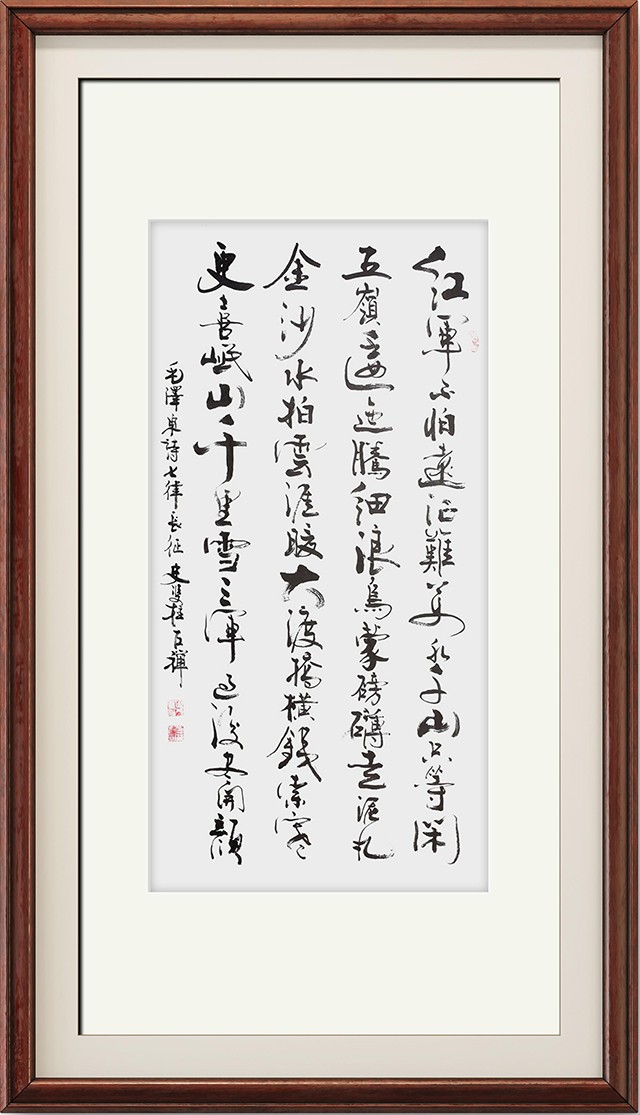 紅軍不怕遠征難萬水千山只等閑
五嶺逶迤騰細浪烏蒙磅礴走泥丸
金沙水拍雲崖暖大渡橋橫鐵索寒
更喜岷山千里雪三軍過後盡開顏
毛澤東詩七律長征